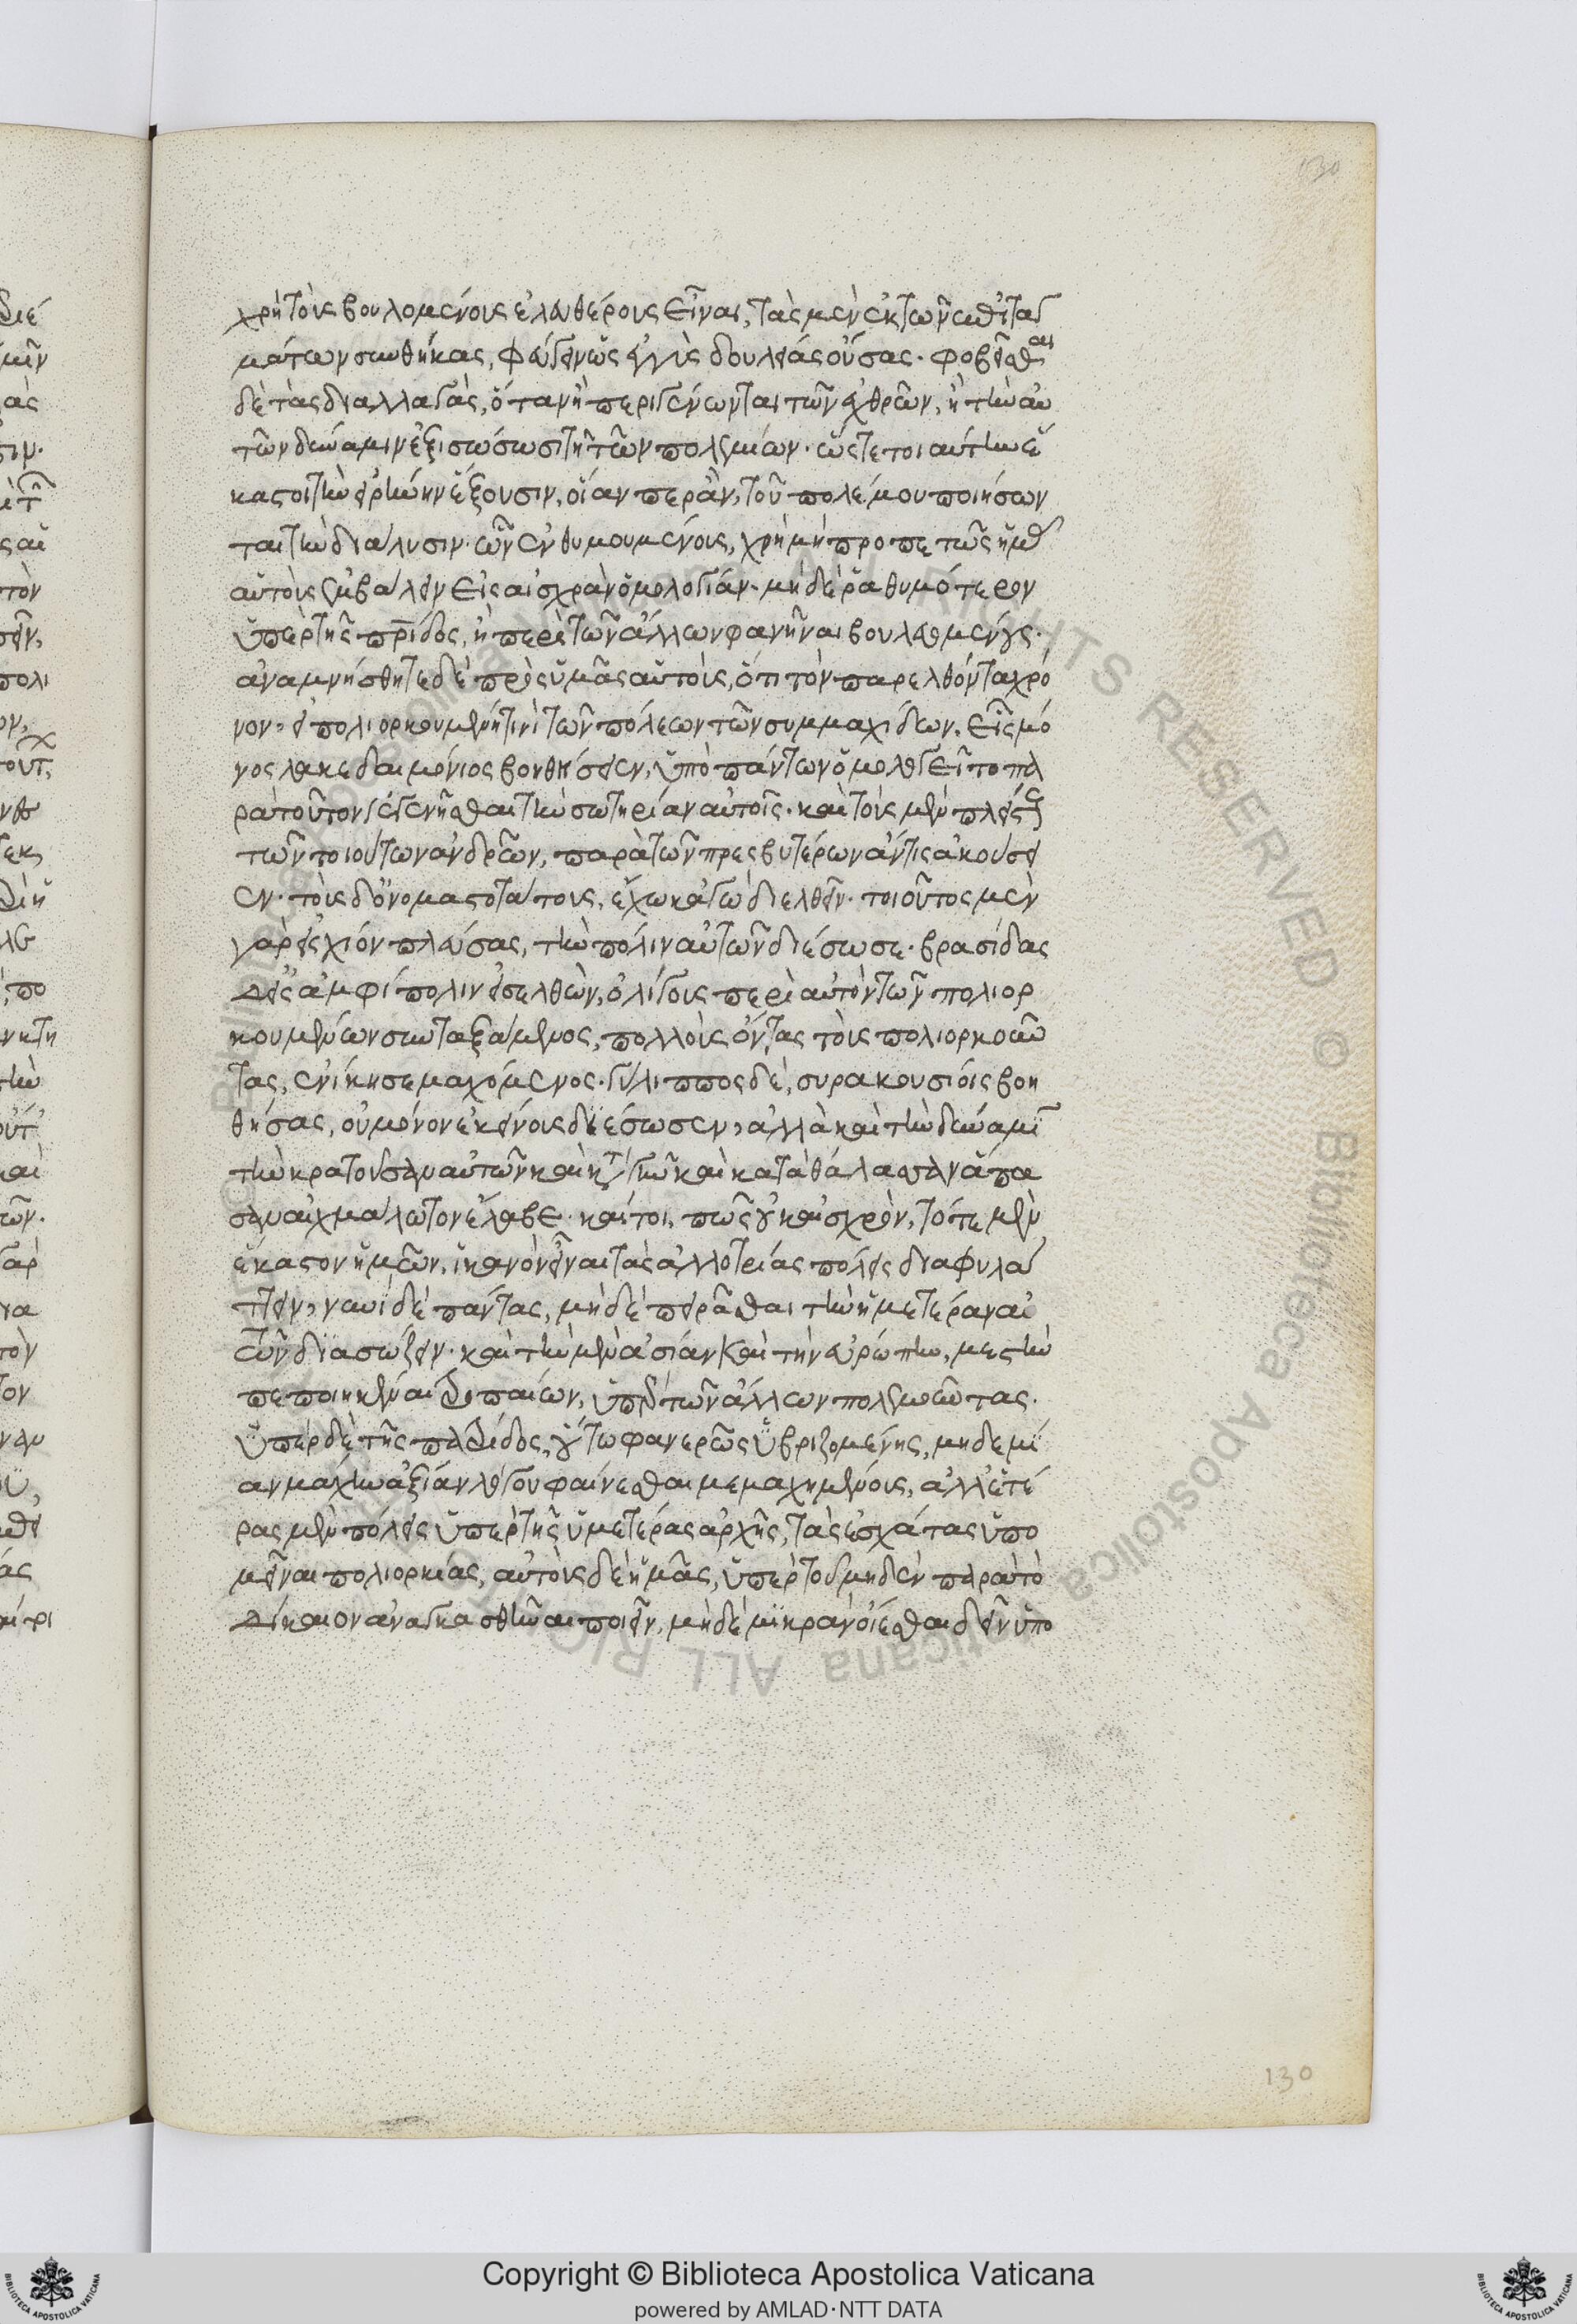 130
χρὴ τοὺς βουλομένους ἐλευθέρους εἶναι, τὰς μὲν ἐκ τῶν ἐπιταγ
μάτων συνθήκας, φεύγειν ὡς ἐγγὺς δουλείας οὔσας. φοβεῖσθαι
δὲ τὰς διαλλαγὰς, ὅταν ἢ περιγένωνται τῶν ἐχθρῶν, ἢ τὴν αὑ
τῶν δύναμιν ἐξισώσωσι τῇ τῶν πολεμίων. ὥστε τοιαύτην ἕ
καστοι τὴν εἰρήνην ἕξουσιν, οἵαν περ ἂν, τοῦ πολέμου ποιήσων
ται τὴν διάλυσιν. ὧν ἐνθυμουμένους, χρὴ μὴ προπετῶς ἡμᾶς
αὐτοὺς ἐμβαλεῖν εἰς αἰσχρὰν ὁμολογίαν. μηδὲ ῥᾳθυμότερον
ὑπὲρ τῆς πρίδος, ἢ περὶ τῶν ἄλλων φανῆναι βουλευομένους.
ἀναμνήσθητε δὲ πρὸς ὑμᾶς αὐτοὺς, ὅτι τὸν παρελθόντα χρό
νον, εἰ πολιορκουμένῃ τινὶ τῶν πόλεων τῶν συμμαχίδων, εἷς μό
νος λακεδαιμόνιος βοηθήσειεν, ὑπὸ πάντων ὁμολογεῖτο πα
ρὰ τοῦτον γεγενῆσθαι τὴν σωτηρίαν αὐτοῖς. καὶ τοὺς μὲν πλείστους
τῶν τοιούτων ἀνδρῶν, παρὰ τῶν πρεσβυτέρων ἄν τις ἀκούσει
εν. τοὺς δ' ὀνομαστοτάτους, ἔχω κἀγὼ διελθεῖν. τοιοῦτος μὲν
γὰρ εἰς χίον πλεύσας, τὴν πόλιν αὐτῶν διέσωσε. βρασίδας
δ' εἰς ἀμφίπολιν εἰσελθὼν, ὀλίγους περὶ αὑτὸν τῶν πολιορ
κουμένων συνταξάμενος, πολλοὺς ὄντας τοὺς πολιορκοῦν
τας, ἐνίκησε μαχόμενος. γύλιππος δὲ, συρακουσίοις βοη
θήσας, οὐ μόνον ἐκείνους διέσωσεν, ἀλλὰ καὶ τὴν δύναμιν
τὴν κρατοῦσαν αὐτῶν καὶ κτ γῆν καὶ κατὰ θάλασσαν ἅπα
σαν αἰχμάλωτον ἔλαβε. καίτοι, πῶς οὐκ αἰσχρὸν, τότε μὲν
ἕκαστον ἡμῶν, ἱκανὸν εἶναι τὰς ἀλλοτρίας πόλεις διαφυλάτ
τειν, νυνὶ δὲ πάντας, μηδὲ πειρᾶσθαι τὴν ἡμετέραν αὐ
τῶν διασώζειν. καὶ τὴν μὲν ἀσίαν καὶ τὴν εὐρώπην, μεστὴν
πεποιηκέναι τροπαίων, ὑπὲρ τῶν ἄλλων πολεμοῦντας.
ὑπὲρ δὲ τῆς πατρίδος, οὕτω φανερῶς ὑβριζομένης, μηδεμί
αν μάχην ἀξίαν λόγου φαίνεσθαι μεμαχημένους, ἀλλ' ἑτέ
ρας μὲν πόλεις ὑπὲρ τῆς ὑμετέρας ἀρχῆς, τὰς ἐσχάτας ὑπο
μεῖναι πολιορκίας, αὐτοὺς δὲ ἡμᾶς, ὑπὲρ τοῦ μηδὲν παρὰ τὸ
δίκαιον ἀναγκασθῆναι ποιεῖν, μηδὲ μικρὰν οἴεσθαι δεῖν ὑπο
130
Copyright © Biblioteca Apostolica Vaticana
powered by AMLAD·NTT DATA